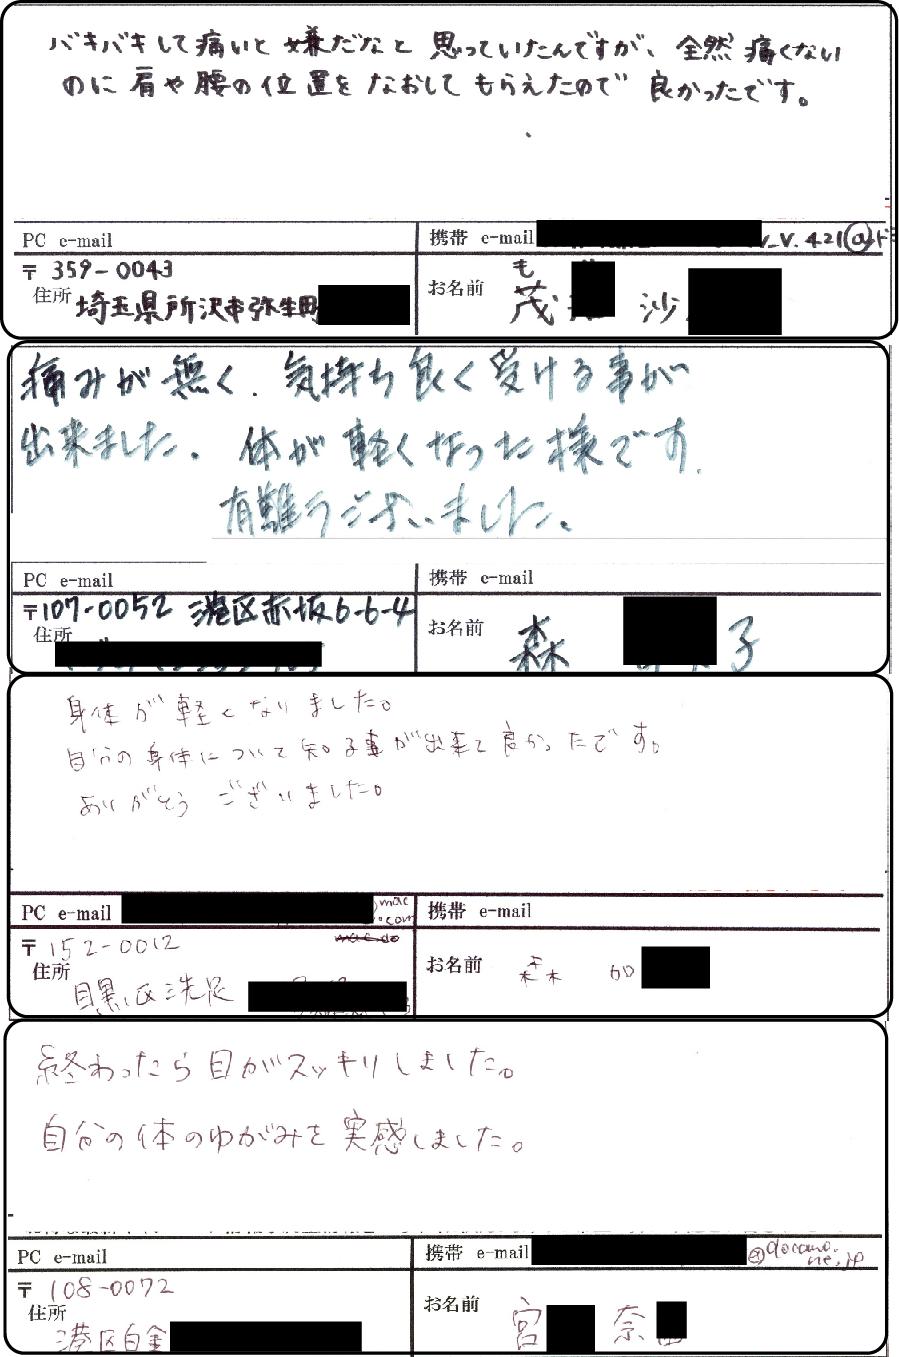 バキバキして痛いと嫌だなと思っていたんですが、全然痛くない
のに肩や腰の位置をなおしてもらえたので良かったです。
PC e-mail
携帯 e-mail V_V.421@ド
〒359-0043
住所 埼玉県所沢市弥生町
お名前 も 茂 沙
痛みが無く、気持ち良く受ける事が
出来ました。体が軽くなった様です。
有難うございました。
PC e-mail
携帯 e-mail
〒107-0052 港区赤坂6-6-4
住所
お名前 森 子
身体が軽くなりました。
自分の身体について知る事が出来て良かったです。
ありがとうございました。
PC e-mail mac.com
携帯 e-mail
〒152-0012
住所 目黒区洗足
お名前 森 加
終わったら目がスッキリしました。
自分の体のゆがみを実感しました。
PC e-mail
携帯 e-mail @docomo.ne.jp
〒108-0072
住所 港区白金
お名前 宮 奈